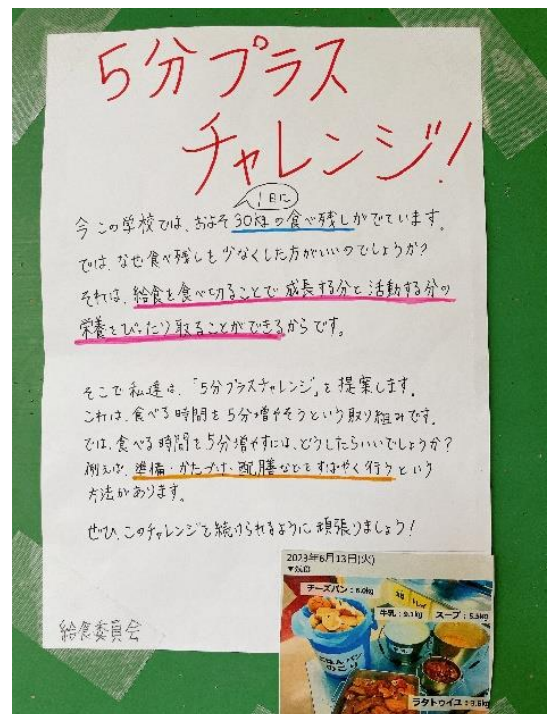 5分プラス
チャレンジ!
1日に
今この学校では、およそ30kgの食べ残しがでています。
では、なぜ食べ残しを少なくした方がいいのでしょうか?
それは、給食を食べ切ることで成長する分と活動する分の
栄養をぴったり取ることができるからです。
そこで私達は、「5分プラスチャレンジ」を提案します。
これは、食べる時間を5分増やそうという取り組みです。
では、食べる時間を5分増やすには、どうしたらいいでしょうか?
例えば、準備・かたづけ・配膳などをすばやく行うという
方法があります。
ぜひ、このチャレンジを続けられるように頑張りましょう!
給食委員会
2023年6月13日(火)
チーズパン:6.0kg
牛乳:9.1kg
スープ:5.5kg
ごはんパン
のこり
ラタトゥイユ:3.6kg